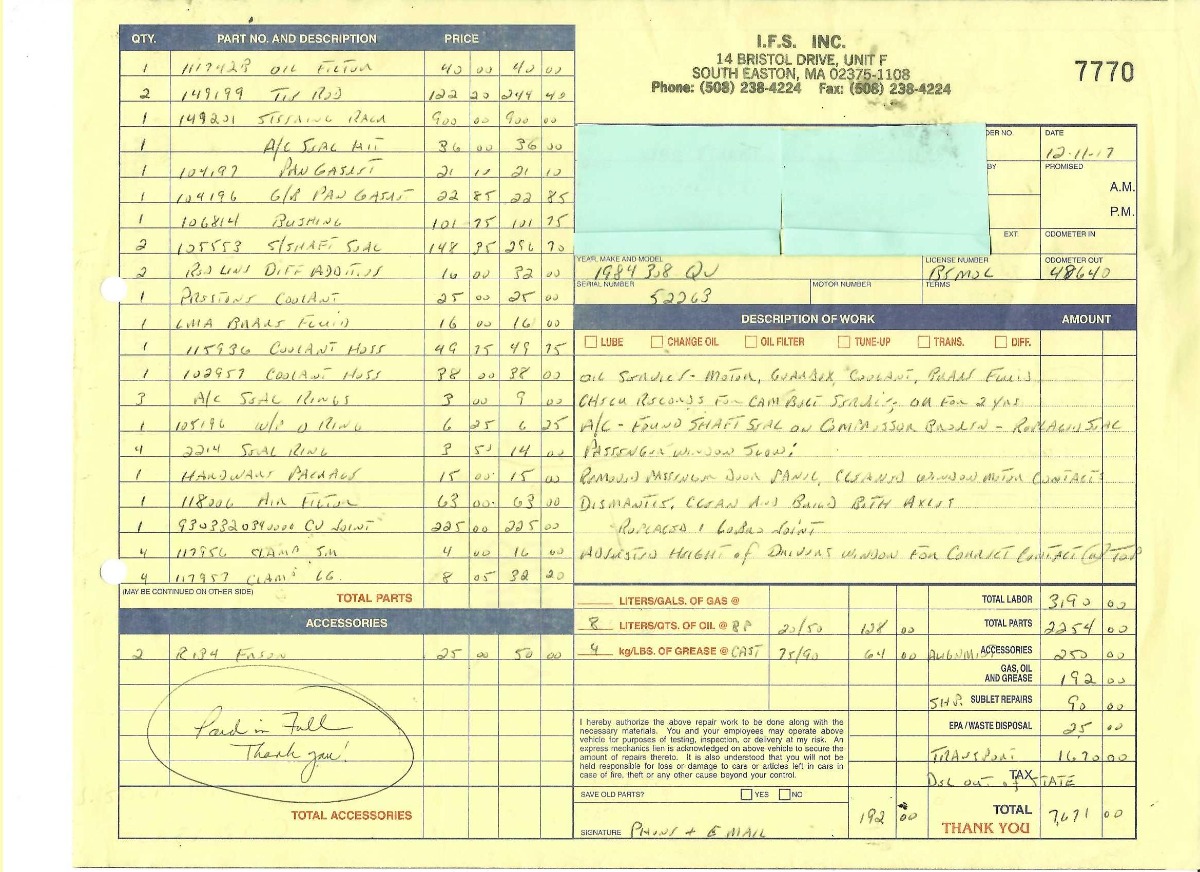 QTY. PART NO. AND DESCRIPTION PRICE
1 1117423 OIL FILTER 40 00 40 00
2 149199 TIE ROD 122 20 244 40
1 149201 STEERING RACK 900 00 900 00
1 A/C SEAL KIT 36 00 36 00
1 104197 PAN GASKET 21 10 21 10
1 104196 G/B PAN GASKET 22 85 22 85
1 106814 BUSHING 101 75 101 75
2 105553 S/SHAFT SEAL 148 35 296 70
2 RED LINE DIFF ADDITIVE 16 00 32 00
1 PRESTONE COOLANT 25 00 25 00
1 LMA BRAKE FLUID 16 00 16 00
1 115936 COOLANT HOSE 49 75 49 75
1 102957 COOLANT HOSE 38 00 38 00
3 A/C SEAL RINGS 3 00 9 00
1 105196 W/P O RING 6 25 6 25
4 2214 SEAL RING 3 50 14 00
1 HARDWARE PACKAGE 15 00 15 00
1 118006 AIR FILTER 63 00 63 00
1 9303320340000 CV JOINT 225 00 225 00
4 117956 CLAMP SM 4 00 16 00
4 117957 CLAMP LG. 8 05 32 20
(MAY BE CONTINUED ON OTHER SIDE) TOTAL PARTS
ACCESSORIES
2 R134 FREON 25 00 50 00
Paid in Full
Thank you!
TOTAL ACCESSORIES
I.F.S. INC.
14 BRISTOL DRIVE, UNIT F
SOUTH EASTON, MA 02375-1108
Phone: (508) 238-4224 Fax: (508) 238-4224
7770
DER NO. DATE
12-11-17
BY PROMISED
A.M.
P.M.
EXT. ODOMETER IN
YEAR, MAKE AND MODEL LICENSE NUMBER ODOMETER OUT
1984 308 QV 48640
SERIAL NUMBER MOTOR NUMBER TERMS
52263
DESCRIPTION OF WORK AMOUNT
LUBE CHANGE OIL OIL FILTER TUNE-UP TRANS. DIFF.
OIL SERVICE - MOTOR, GEARBOX, COOLANT, BRAKE FLUID
CHECK RECORDS FOR CAM BELT SERVICE, OK FOR 2 YRS
A/C - FOUND SHAFT SEAL ON COMPRESSOR BROKEN - REPLACED SEAL
PASSENGER WINDOW SLOW:
REMOVED PASSENGER DOOR PANEL, CLEANED WINDOW MOTOR CONTACTS
DISMANTLE, CLEAN AND BUILD BOTH AXLES
REPLACED 1 LOBRO JOINT
ADJUSTED HEIGHT OF DRIVERS WINDOW FOR CORRECT CONTACT @ TOP
LITERS/GALS. OF GAS @ TOTAL LABOR 3,190 00
8 LITERS/QTS. OF OIL @ BP 20/50 128 00 TOTAL PARTS 2254 00
4 kg/LBS. OF GREASE @ CAST 75/90 64 00 ALIGNMENT ACCESSORIES 250 00
GAS, OIL AND GREASE 192 00
SHP. SUBLET REPAIRS 90 00
EPA / WASTE DISPOSAL 25 00
TRANSPORT 1670 00
DEL OUT of STATE TAX
I hereby authorize the above repair work to be done along with the
necessary materials. You and your employees may operate above
vehicle for purposes of testing, inspection, or delivery at my risk. An
express mechanics lien is acknowledged on above vehicle to secure the
amount of repairs thereto. It is also understood that you will not be
held responsible for loss or damage to cars or articles left in cars in
case of fire, theft or any other cause beyond your control.
SAVE OLD PARTS? YES NO
192 00 TOTAL 7,671 00
THANK YOU
SIGNATURE PHONE + E MAIL